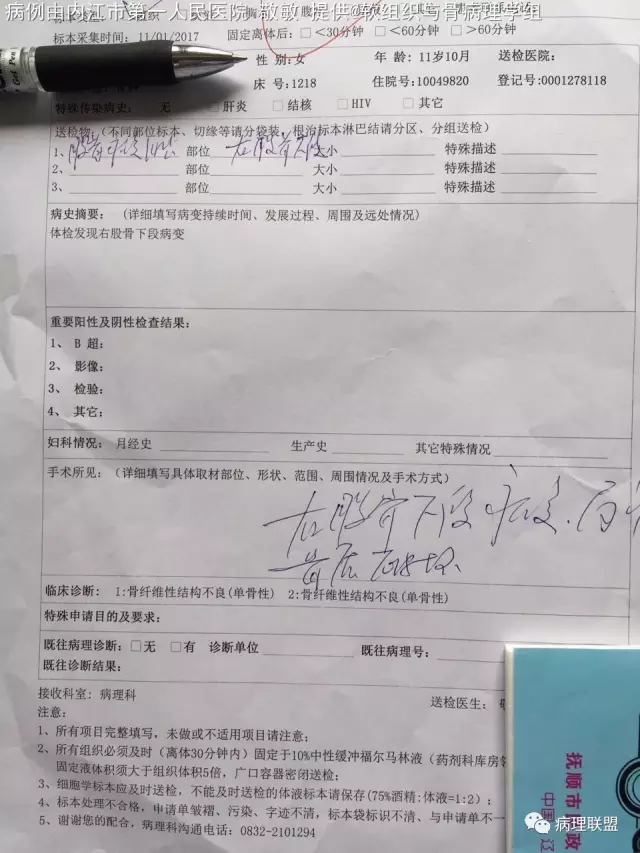 病例由内江市第一人民医院 敬敏 提供@软组织与骨病理学组
标本采集时间：11/01/2017 固定离体后：□<30分钟 □<60分钟 □>60分钟
性 别:女 年 龄: 11岁10月 送检医院:
床 号:1218 住院号:10049820 登记号:0001278118
特殊传染病史： 无 □肝炎 □结核 □HIV □其它
送检物：（不同部位标本、切缘等请分袋装，根治标本淋巴结请分区、分组送检）
1、股骨病变 部位 右股骨下段 大小 特殊描述
2、 部位 大小 特殊描述
3、 部位 大小 特殊描述
病史摘要：（详细填写病变持续时间、发展过程、周围及远处情况）
体检发现右股骨下段病变
重要阳性及阴性检查结果：
1、 B 超：
2、 影像：
3、 检验：
4、 其它：
妇科情况： 月经史 生产史 其它特殊情况
手术所见：（详细填写具体取材部位、形状、范围、周围情况及手术方式）
右股骨下段病变.局
临床诊断： 1:骨纤维性结构不良(单骨性) 2:骨纤维性结构不良(单骨性)
特殊申请目的及要求：
既往病理诊断：□无 □有 诊断单位 既往病理号：
既往诊断结果：
接收科室: 病理科 送检医生:
注意：
1、所有项目完整填写，未做或不适用项目请注意；
2、所有组织必须及时（离体30分钟内）固定于10%中性缓冲福尔马林液（药剂科库房
固定液体积须大于组织体积5倍，广口容器密闭送检；
3、细胞学标本应及时送检，不能及时送检的体液标本请保存(75%酒精:体液=1:2)；
4、标本处理不合格，申请单皱褶、污染、字迹不清，标本袋标识不清、与申请单不一
5、谢谢您的配合，病理科沟通电话：0832-2101294
抚顺市 政
中国 辽
病理联盟